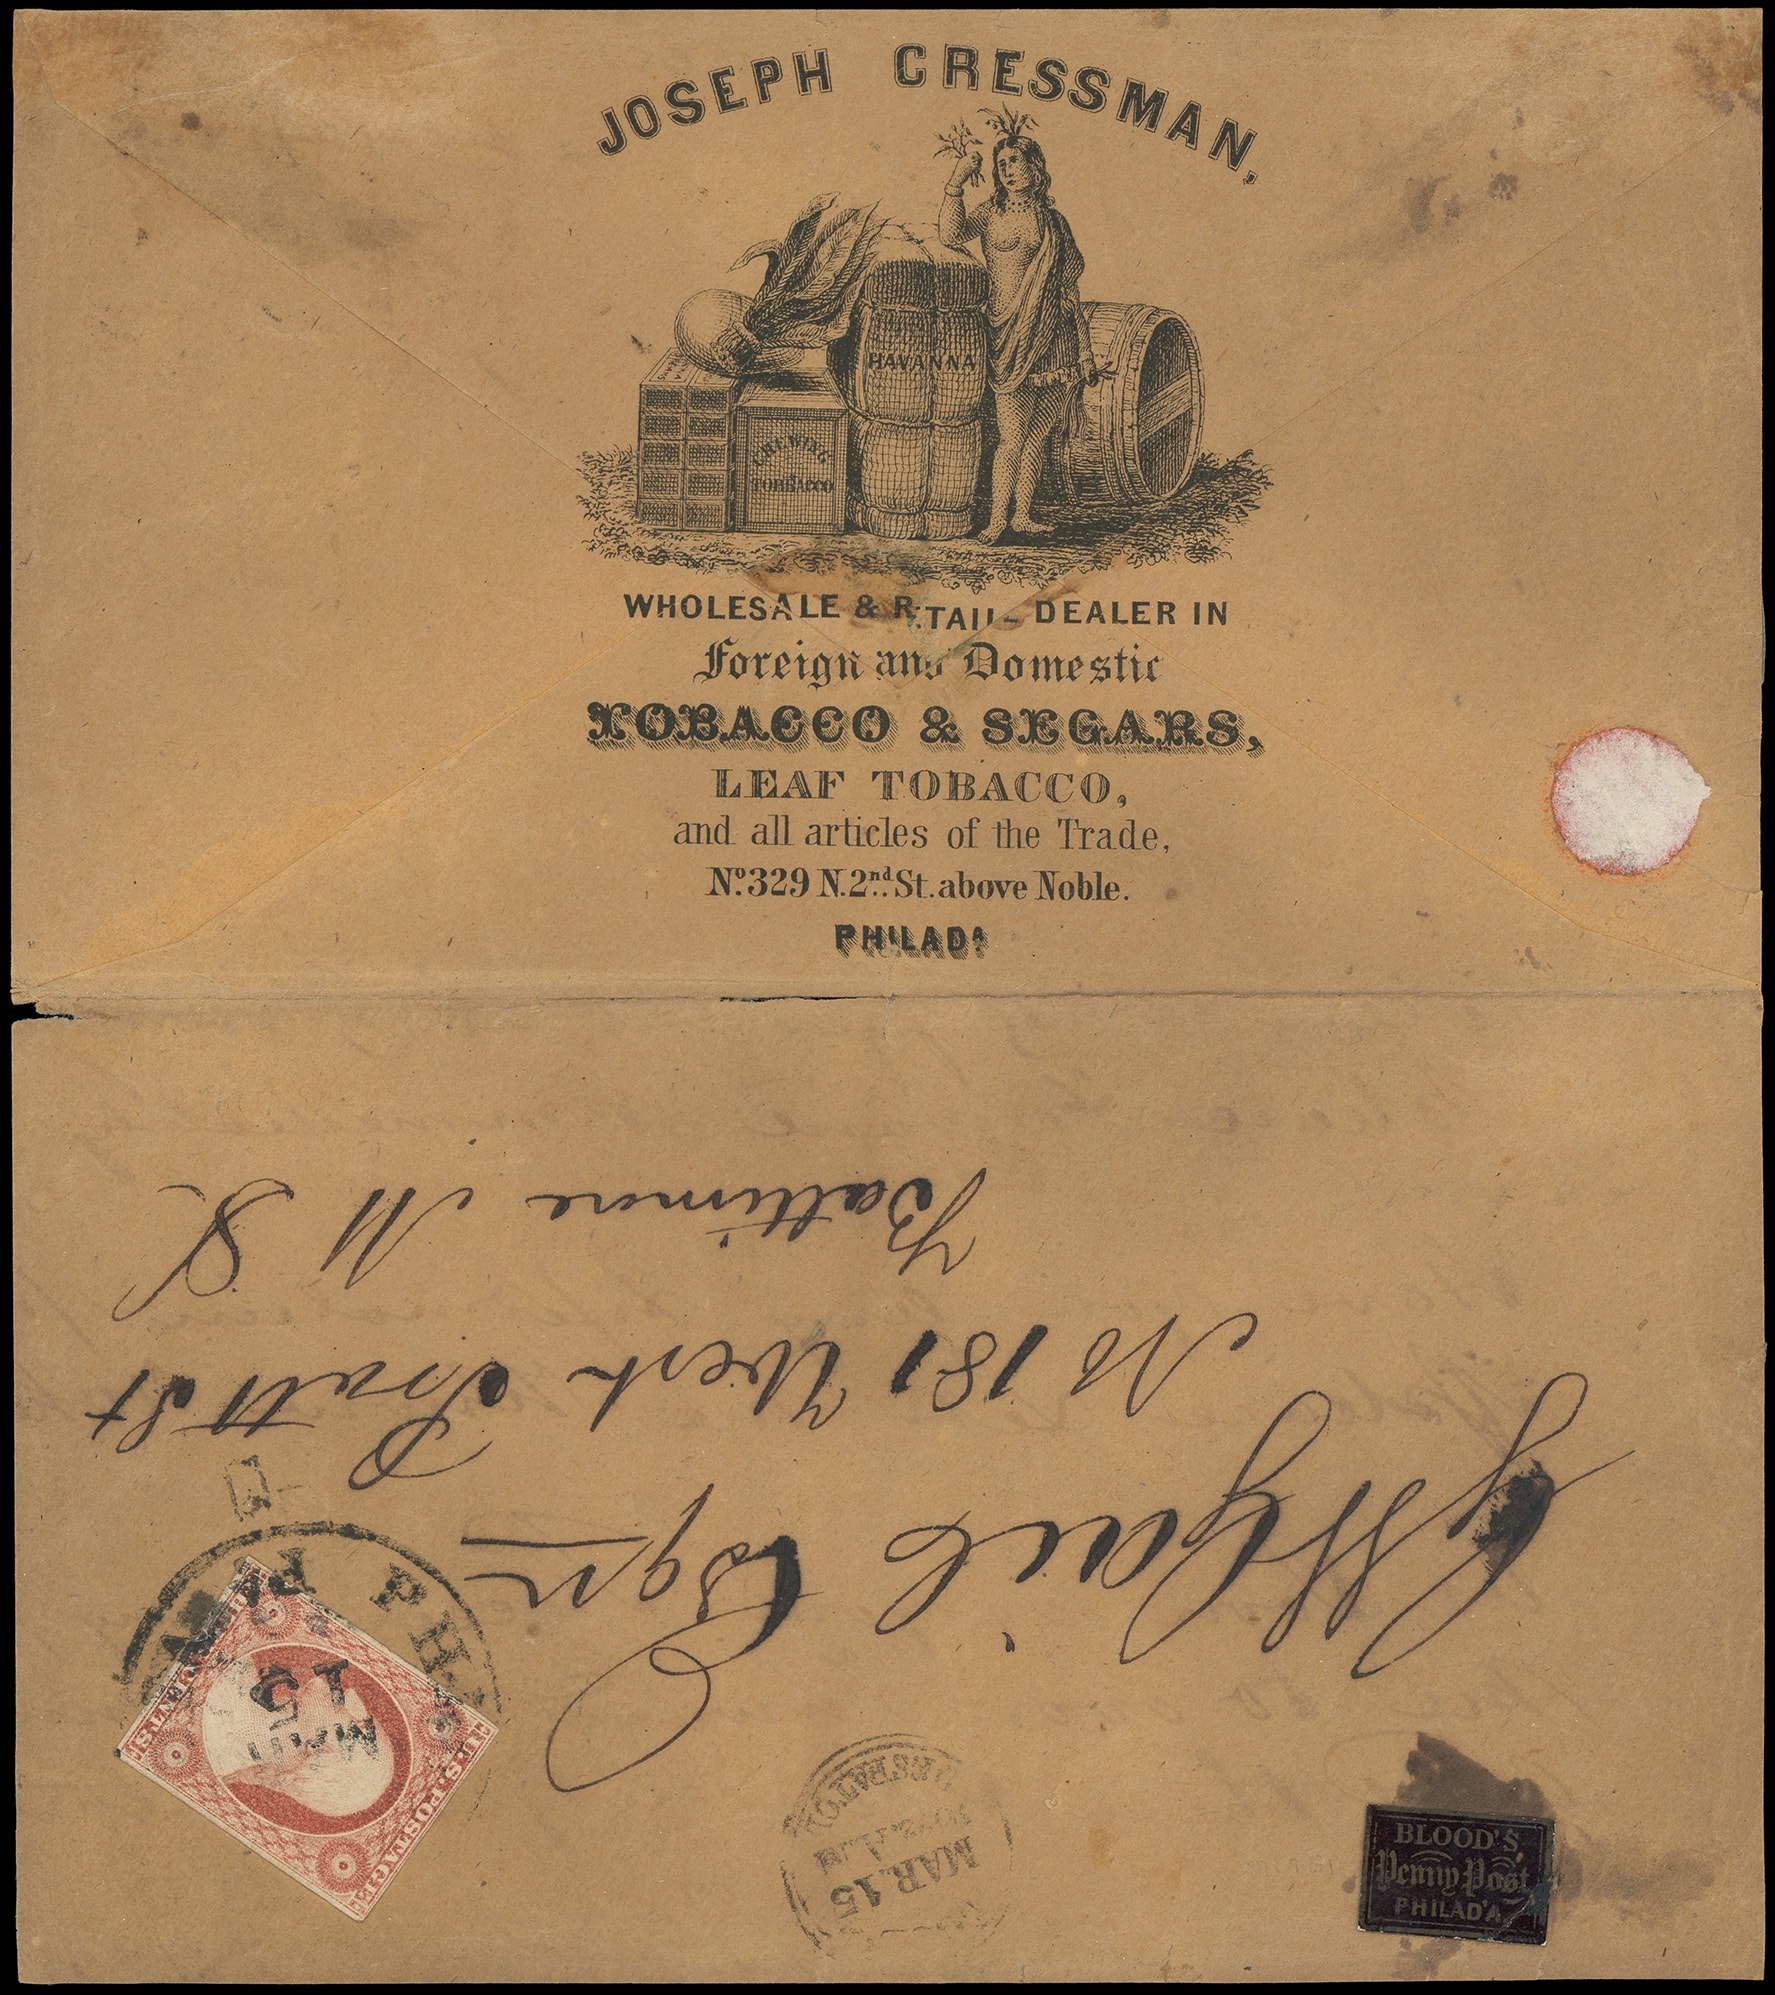 JOSEPH CRESSMAN,
HAVANNA
CHEWING
TOBBACCO
WHOLESALE & RETAIL DEALER IN
Foreign and Domestic
TOBACCO & SEGARS,
LEAF TOBACCO,
and all articles of the Trade,
No. 329 N. 2nd St. above Noble.
PHILADA
BLOOD'S
Penny Post
PHILAD'A
MAR. 15
DESPATCH
U.S. POSTAGE
THREE CENTS
PH
PA
MAR
15
Esqr
No 181 West Pratt St
Baltimore Md